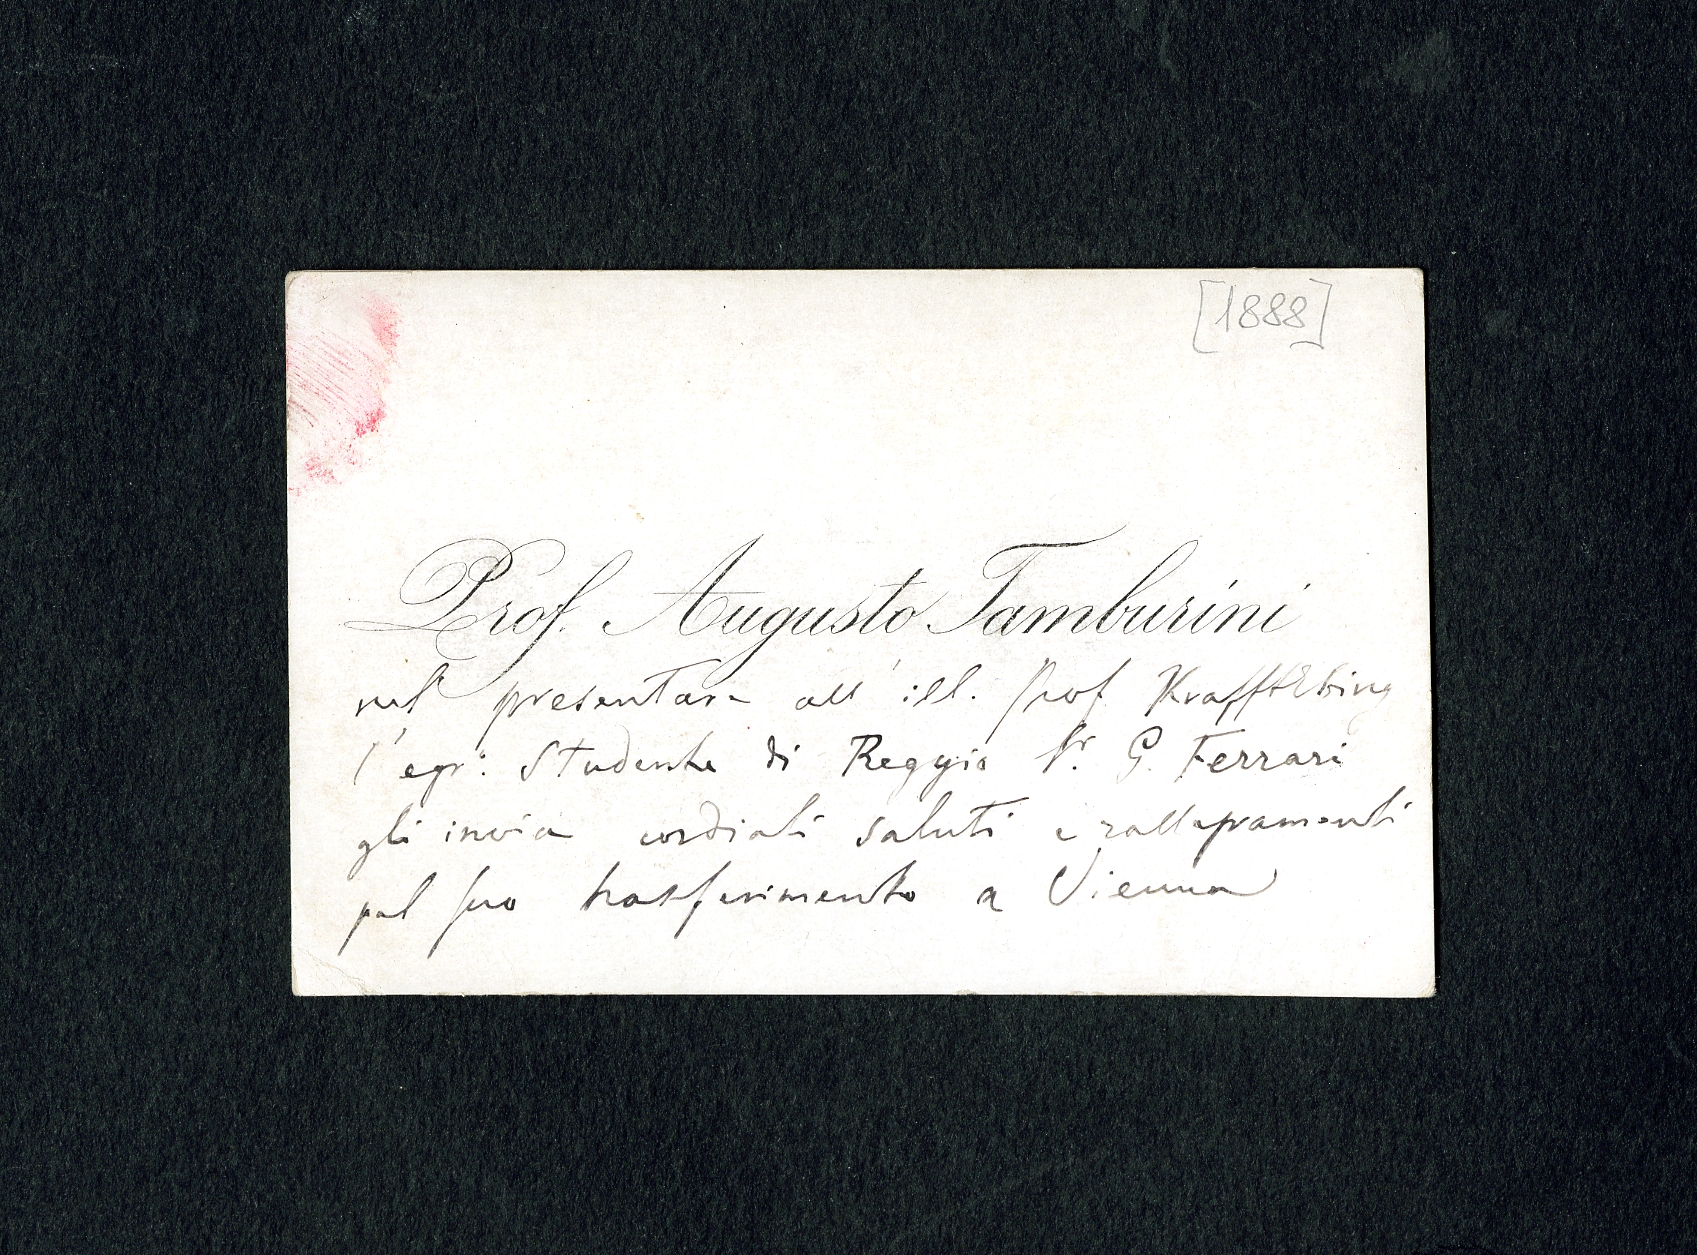 [1888]
Prof. Augusto Tamburini
nel presentare all' ill. Prof Krafft Ebing
l'egr: Studente di Reggio Sr. G. Ferrari
gli invia cordiali saluti e rallegramenti
pel suo trasferimento a Vienna